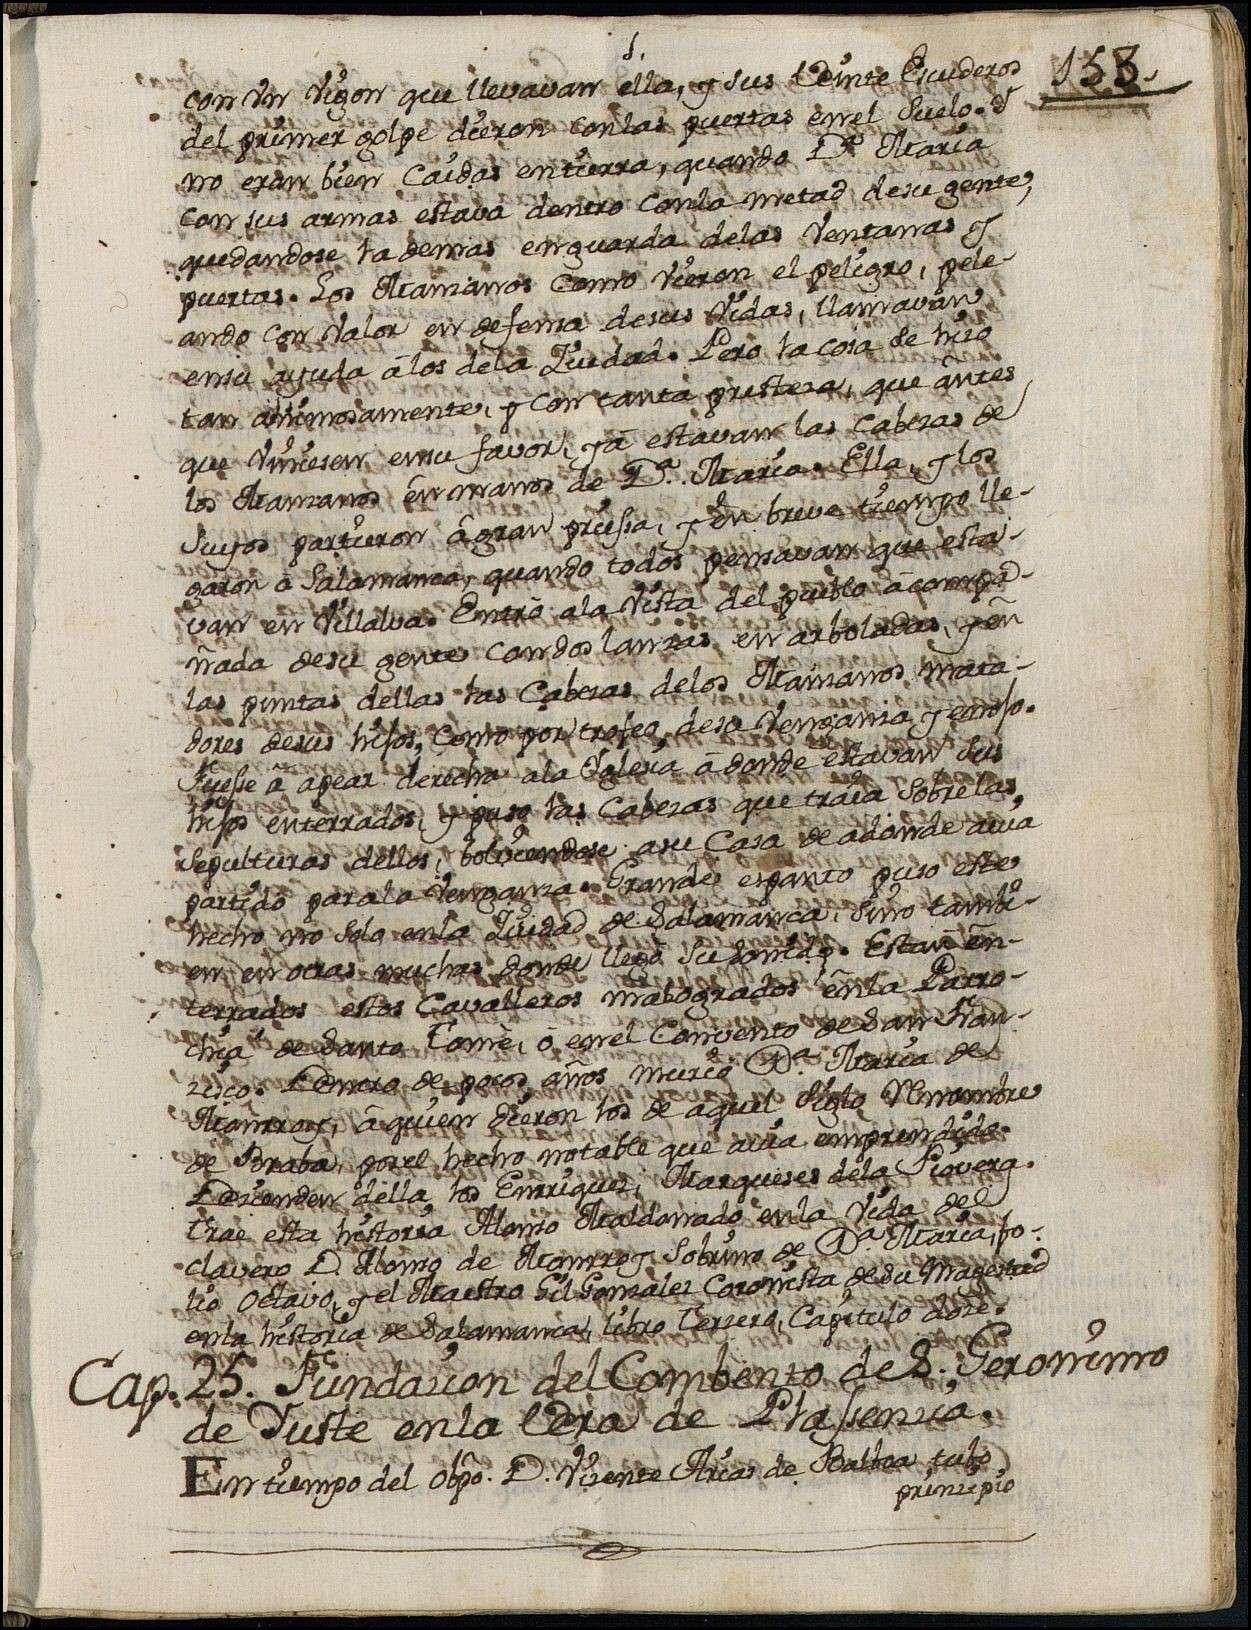 153.
con Vn Vigon que llevavan ella, y sus Veinte Escuderos
del primer golpe dieron con las puertas en el Suelo. Y
no eran bien Caidas en tierra, quando D.ª Maria
con sus armas estava dentro con la metad de su gente,
quedandose la demas en guarda delas Ventanas y
puertas. Los Manzanos como Vieron el peligro, pele-
ando con Valor en defensa de sus Vidas, llamavan
en su ayuda â los de la Ziudad. Pero la cosa se hiso
tan animosamente, y con tanta presteza, que ântes
que Viniesen en su favor, yâ estavan las Cabezas de
los Manzanos ên manos de D.ª Maria. Ella, y los
Suyos partieron âgran priessa, y ên breve tiempo lle-
garon â Salamanca, quando todos pensavan que esta-
van en Villalva. Entrô ala Vista del pueblo âcompa-
ñada de su gente con dos lanzas en arboladas, y ên
las puntas dellas las Cabezas delos Manzanos mata-
dores de sus hijos, como por trofeo de su Venganza y enojo.
Fuesse â apear derecha ala Yglesia âdonde estavan Sus
hijos enterrados, y puso las Cabezas que traia Sobre las
Sepulturas dellos, bolviendose a su Casa de adonde avia
partido para la Venganza. Grande espanto puso este
hecho no Solo en la Ziudad de Salamanca, Sino tambi-
en en otras muchas donde llegô Su sonido. Estan ên-
terrados estos Cavalleros malogrados ên la Parro-
chia de Santo Tomè, ô en el Convento de San Fran-
zisco. Dentro de pocos años muriô D.ª Maria de
Monrroy, â quien dieron los de aquel Siglo Renombre
de Braba, por el hecho notable que avia emprendido.
Decienden della los Enrriquez, Marqueses dela Piovera.
Trae esta historia Alonso Maldonado en la Vida del
clavero D. Alonso de Monrroy Sobrino de D.ª Maria, fo-
lio Octavo, y el Maestro Gil Gonzalez Coronista de Su Magestad
en la historia de Salamanca, libro Terzero, Capitulo doze.
Cap. 25. Fundazion del Combento de S. Geronimo
de Yuste en la Vera de Plassenzia.
En tiempo del Obpo. D. Vizente Arias de Balboa tubo
prinzipio